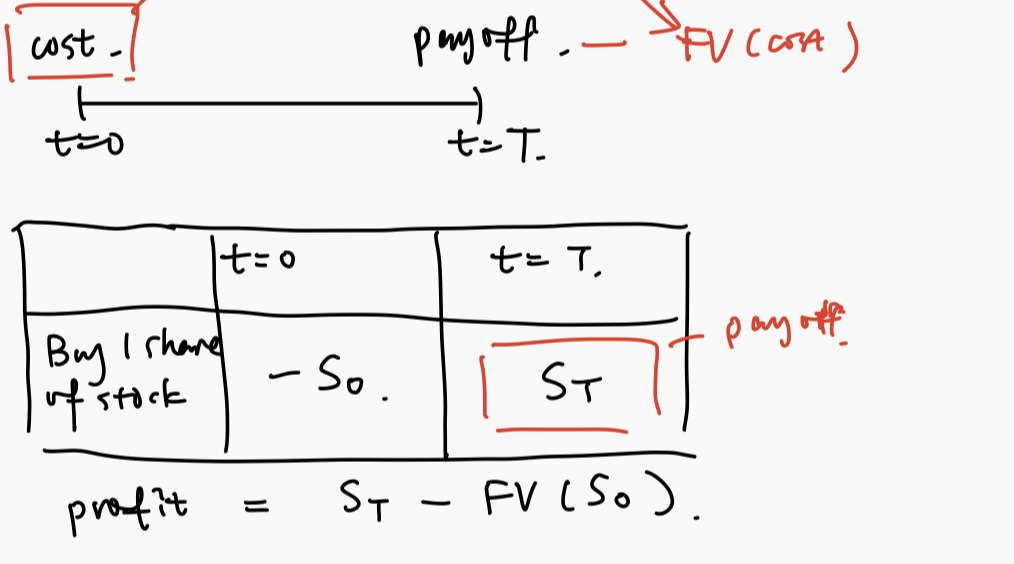 cost. payoff. — FV(cost)
t=0 t=T.
t=0 t= T.
Buy 1 share
of stock
- S₀. S_T payoff.
profit = S_T - FV(S₀).